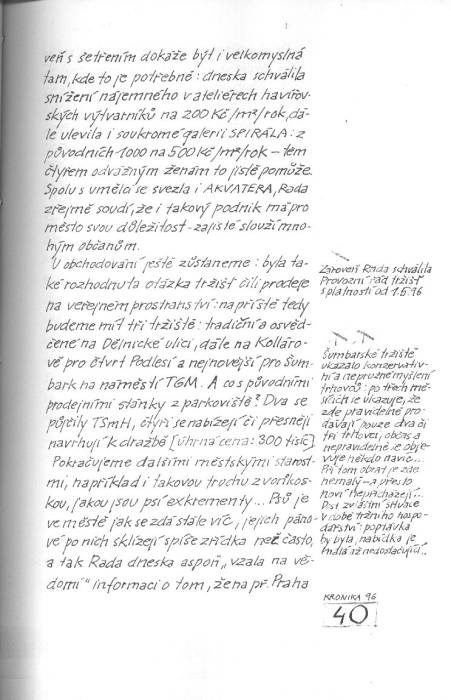 veň s šetřením dokáže být i velkomyslná
tam, kde to je potřebné: dneska schválila
snížení nájemného v ateliérech havířov-
ských výtvarníků na 200 Kč/m²/rok, dá-
le ulevila i soukromé galerii SPIRÁLA: z
původních 1000 na 500 Kč/m²/rok – těm
čtyřem odvážným ženám to jistě pomůže.
Spolu s umělci se svezla i AKVATERA, Rada
zřejmě soudí, že i takový podnik má pro
město svou důležitost - zajisté slouží mno-
hým občanům.
U obchodování ještě zůstaneme: byla ta-
ké rozhodnuta otázka tržišť čili prodeje
na veřejném prostranství: napříště tedy
budeme mít tři tržiště: tradiční a osvěd-
čené na Dělnické ulici, dále na Kolláro-
vě pro čtvrť Podlesí a nejnovější pro Šum-
bark na náměstí TGM. A co s původními
prodejními stánky z parkoviště? Dva se
půjčily TSmH, čtyři se nabízejí či přesněji
navrhují k dražbě [úhrná cena: 300 tisíc]
Pokračujeme dalšími městskými starost-
mi, například i takovou trochu zvorlkos-
kou, jakou jsou psí exkrementy... Psů je
ve městě jak se zdá stále víc, jejich páno-
vé po nich sklízejí spíše zřídka než často,
a tak Rada dneska aspoň „vzala na vě-
domí" informaci o tom, že na př. Praha
Zároveň Rada schválila
Provozní řád tržišť
s platností od 1.5.96
Šumbarské tržiště
ukázalo konzervativ-
ní a nepružné myšlení
trhovců: po třech mě-
sících se ukazuje, že
zde pravidelně pro-
dávají pouze dva či
tři trhovci, občas a
nepravidelně se obje-
vuje někdo navíc...
Při tom obrat je zde
nemalý – a přesto
noví nepřicházejí...
Dost zvláštní situace
v době tržního hospo-
dářství: poptávka
by byla, nabídka je
mdlá až nedostačující...
KRONIKA 96
40